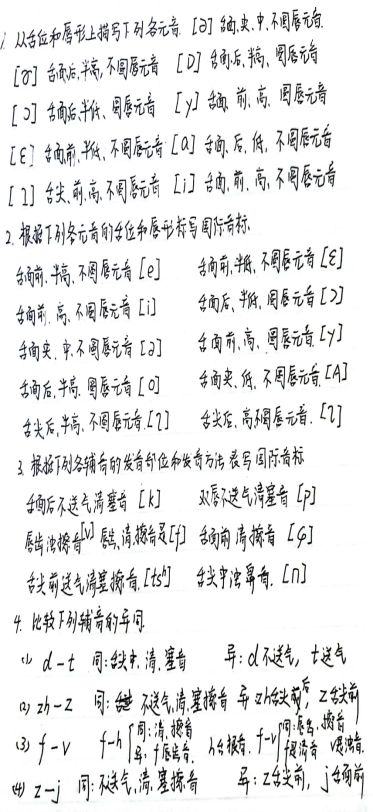 1. 从舌位和唇形上描写下列各元音. [ə] 舌面,央.中.不圆唇元音.
[ɤ] 舌面后.半高,不圆唇元音 [ɒ] 舌面后,半高,圆唇元音
[ɔ] 舌面后,半低、圆唇元音 [y] 舌面,前,高、圆唇元音
[ɛ] 舌面前.半低、不圆唇元音 [ɑ] 舌面、后、低,不圆唇元音
[ɿ] 舌尖,前,高,不圆唇元音 [i] 舌面,前,高、不圆唇元音
2. 根据下列各元音的舌位和唇形标写国际音标.
舌面前,半高,不圆唇元音 [e] 舌面前,半低,不圆唇元音 [ɛ]
舌面前,高、不圆唇元音 [i] 舌面后、半低,圆唇元音 [ɔ]
舌面央.中.不圆唇元音 [ə] 舌面前、高、圆唇元音.[y]
舌面后,半高.圆唇元音 [o] 舌面央,低,不圆唇元音.[A]
舌尖后,半高、不圆唇元音.[ʅ] 舌尖后,高不圆唇元音.[ʅ]
3. 根据下列各辅音的发音部位和发音方法表写国际音标
舌面后不送气清塞音 [k] 双唇不送气清塞音 [p]
唇齿浊擦音[v] 唇齿、清,擦音是[f] 舌面前清擦音 [ɕ]
舌尖前送气清塞擦音.[tsʰ] 舌尖中浊鼻音.[n]
4. 比较下列辅音的异同.
(1) d-t 同:舌尖中.清.塞音 异:d不送气,t送气
(2) zh-z 同: 不送气,清.塞擦音 异 zh舌尖后 z舌尖前
(3) f-v f-h 同:清.擦音 异,f唇齿音. h舌根音. f-v 同:唇齿、擦音 f是清音 v是浊音.
(4) z-j 同:不送气,清,塞擦音 异:z舌尖前,j舌面前